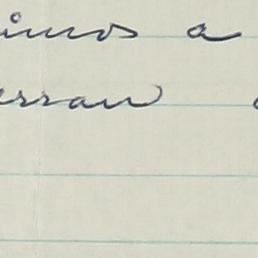 imos a
erran